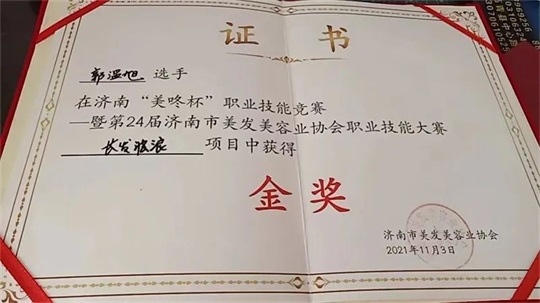 证书
郭温旭 选手
在济南“美咚杯”职业技能竞赛
—暨第24届济南市美发美容业协会职业技能大赛
长发波浪 项目中获得
金奖
济南市美发美容业协会
2021年11月3日